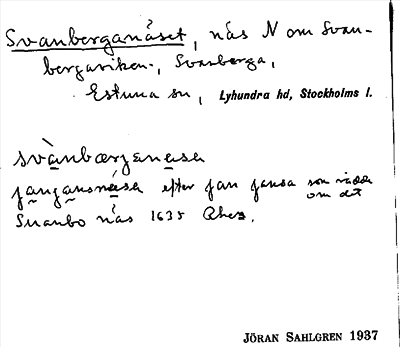 Svanberganäset, näs N om Svan-
bergaviken, Svanberga,
Estuna sn, Lyhundra hd, Stockholms l.
svànbærganäsə
jangànsnäsə efter Jan Jansa som rådde
om det
Suanbo näs 1635
JÖRAN SAHLGREN 1937